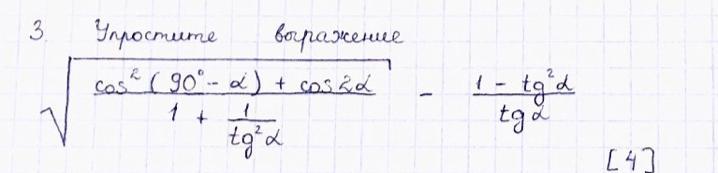 3 Упростите выражение
√((cos²(90°-α) + cos2α)/(1 + 1/(tg²α))) - (1 - tg²α)/(tgα)
[4]